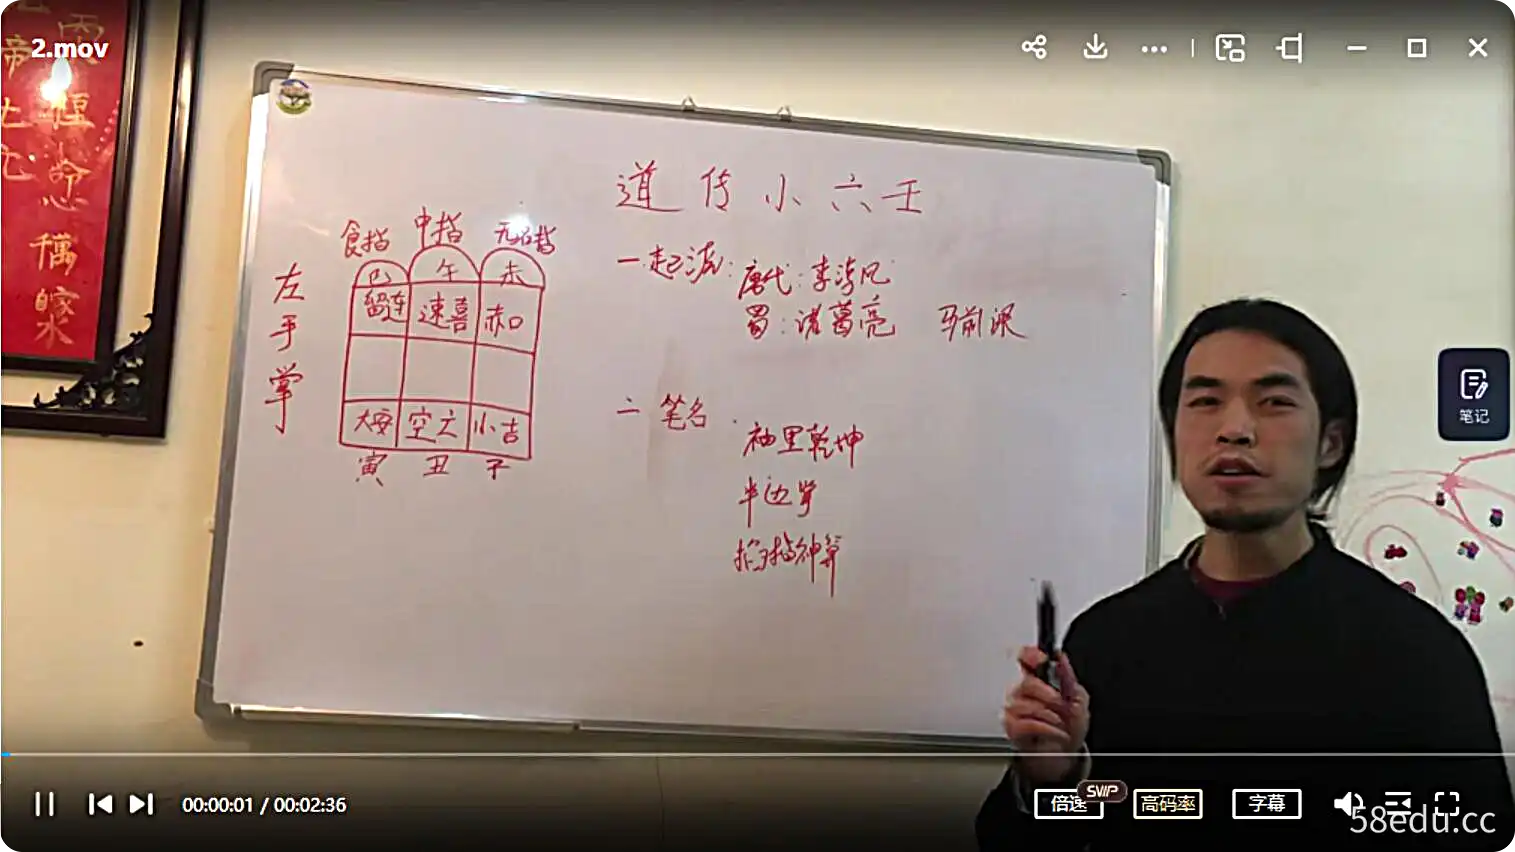 2.mov
道传小六壬
食指 中指 无名指
巳 午 未
留连 速喜 赤口
大安 空亡 小吉
寅 丑 子
左手掌
一 起源:唐代:李淳风
蜀:诸葛亮 马前课
二 笔名
袖里乾坤
半边掌
掐指神算
笔记
00:00:01 / 00:02:36
倍速 SVIP 高码率 字幕
58edu.cc